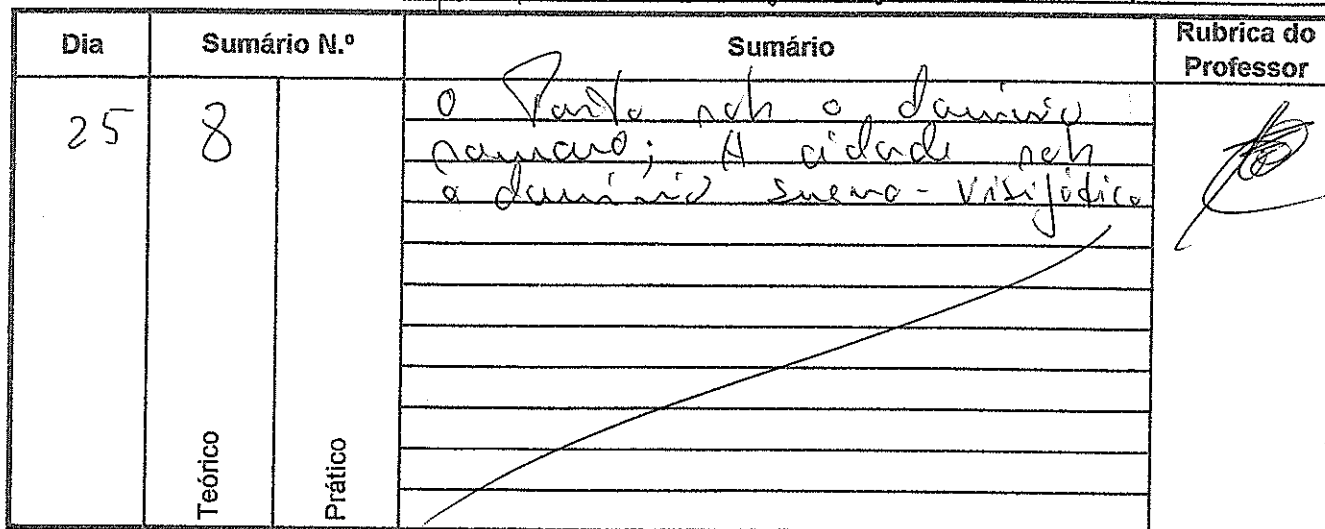 Dia Sumário N.º Sumário Rubrica do Professor
25 8 O Porto sob o domínio
romano; A cidade sob
o domínio suevo-visigótico
Teórico Prático